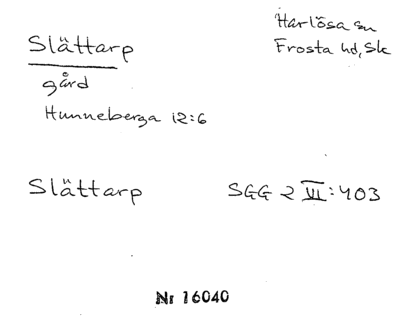 Slättarp
Harlösa sn
Frosta hd, Sk
gård
Hunneberga 12:6
Slättarp
SGG 2 VI: 403
Nr 16040